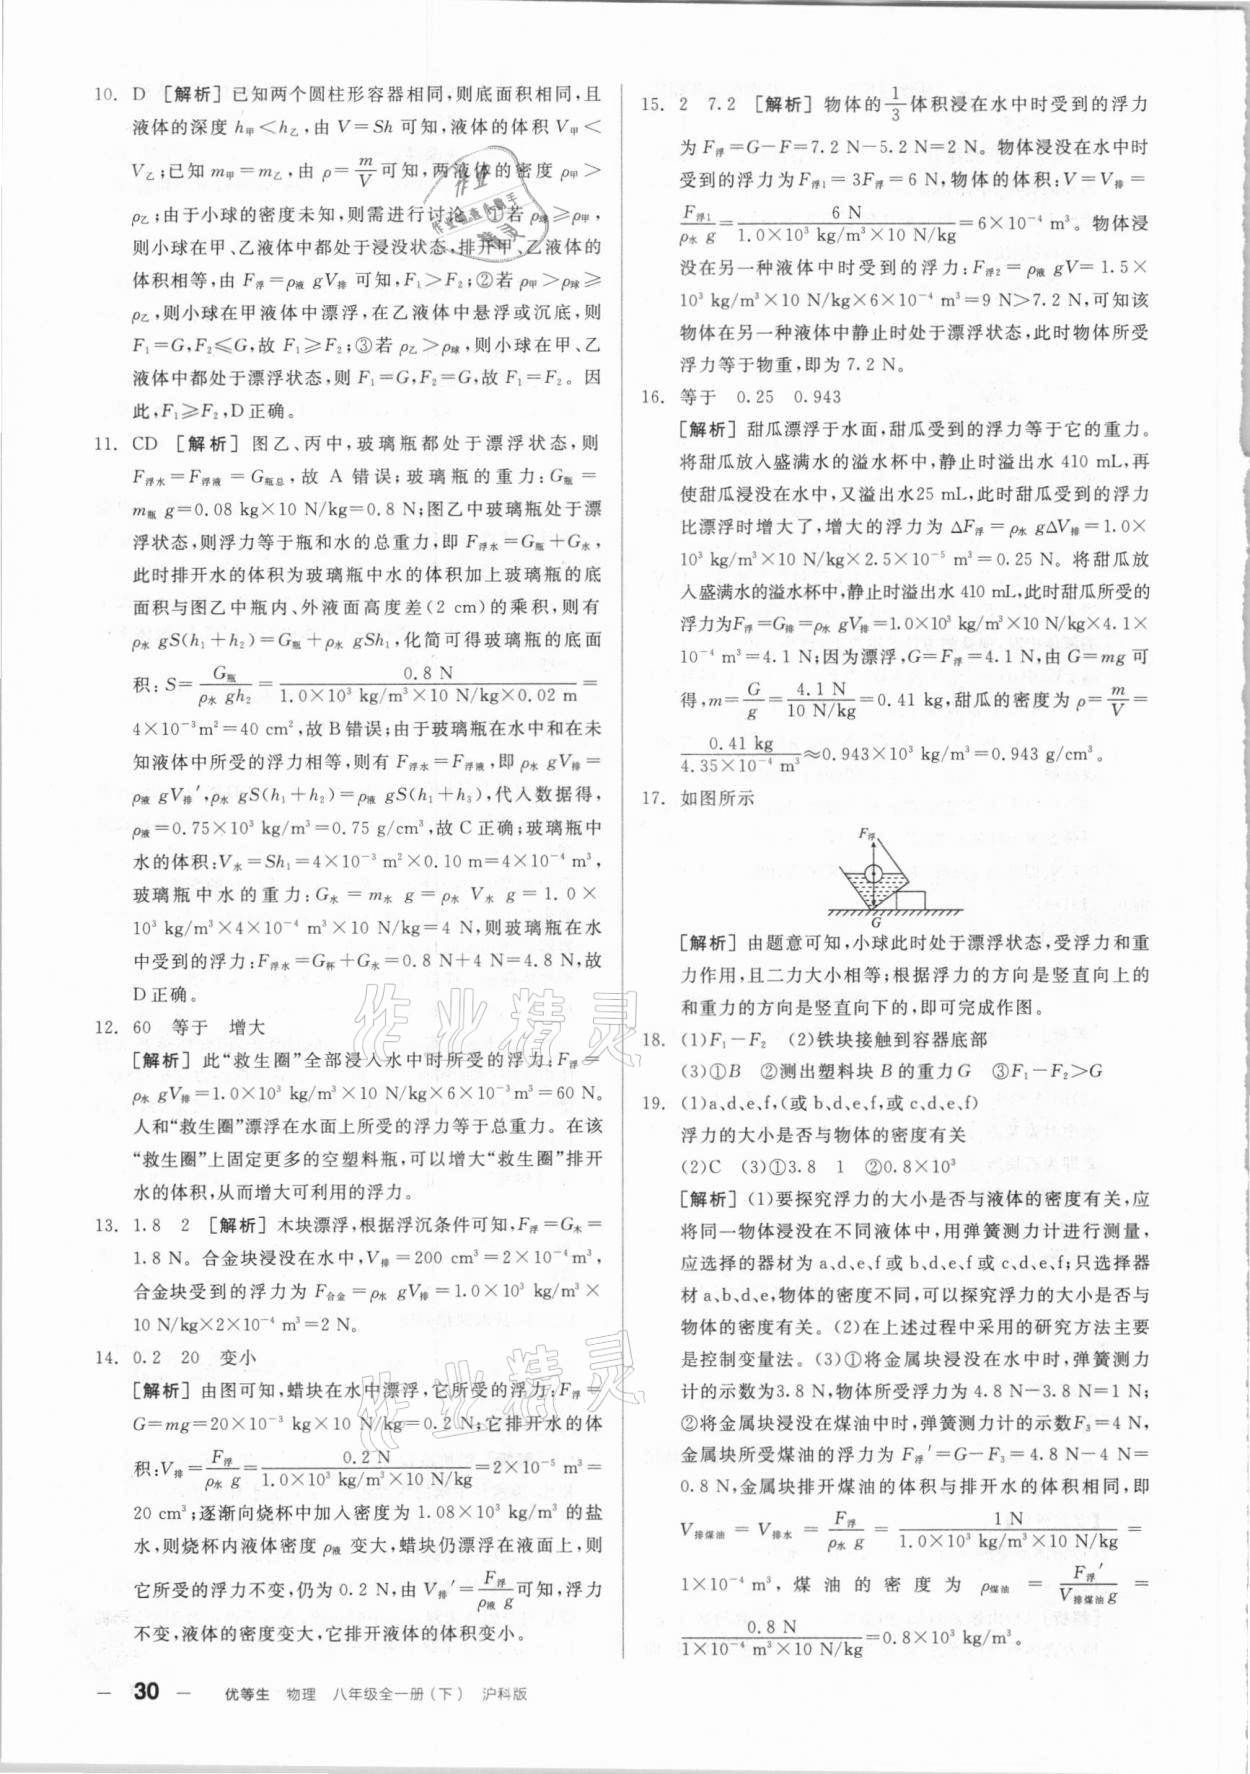 10. D [解析]已知两个圆柱形容器相同,则底面积相同,且
液体的深度 h甲<h乙,由 V=Sh 可知,液体的体积 V甲<
V乙;已知 m甲=m乙,由 ρ=m/V可知,两液体的密度 ρ甲>
ρ乙;由于小球的密度未知,则需进行讨论,①若 ρ球≥ρ甲,
则小球在甲、乙液体中都处于浸没状态,排开甲、乙液体的
体积相等,由 F浮=ρ液 gV排 可知,F₁>F₂;②若 ρ甲>ρ球≥
ρ乙,则小球在甲液体中漂浮,在乙液体中悬浮或沉底,则
F₁=G,F₂≤G,故 F₁≥F₂;③若 ρ乙>ρ球,则小球在甲、乙
液体中都处于漂浮状态,则 F₁=G,F₂=G,故 F₁=F₂。因
此,F₁≥F₂,D正确。
11. CD [解析]图乙、丙中,玻璃瓶都处于漂浮状态,则
F浮水=F浮液=G瓶总,故 A 错误;玻璃瓶的重力:G瓶=
m瓶 g=0.08 kg×10 N/kg=0.8 N;图乙中玻璃瓶处于漂
浮状态,则浮力等于瓶和水的总重力,即 F浮水=G瓶+G水,
此时排开水的体积为玻璃瓶中水的体积加上玻璃瓶的底
面积与图乙中瓶内、外液面高度差(2 cm)的乘积,则有
ρ水 gS(h₁+h₂)=G瓶+ρ水 gSh₁,化简可得玻璃瓶的底面
积:S=G瓶/ρ水 gh₂=0.8 N/1.0×10³ kg/m³×10 N/kg×0.02 m=
4×10⁻³m²=40 cm²,故B错误;由于玻璃瓶在水中和在未
知液体中所受的浮力相等,则有 F浮水=F浮液,即 ρ水 gV排=
ρ液 gV排′,ρ水 gS(h₁+h₂)=ρ液 gS(h₁+h₃),代入数据得,
ρ液=0.75×10³ kg/m³=0.75 g/cm³,故C正确;玻璃瓶中
水的体积:V水=Sh₁=4×10⁻³ m²×0.10 m=4×10⁻⁴ m³,
玻璃瓶中水的重力:G水=m水 g=ρ水 V水 g=1.0×
10³ kg/m³×4×10⁻⁴ m³×10 N/kg=4 N,则玻璃瓶在水
中受到的浮力:F浮水=G杯+G水=0.8 N+4 N=4.8 N,故
D正确。
12. 60 等于 增大
[解析] 此“救生圈”全部浸入水中时所受的浮力:F浮=
ρ水 gV排=1.0×10³ kg/m³×10 N/kg×6×10⁻³ m³=60 N。
人和“救生圈”漂浮在水面上所受的浮力等于总重力。在该
“救生圈”上固定更多的空塑料瓶,可以增大“救生圈”排开
水的体积,从而增大可利用的浮力。
13. 1.8 2 [解析]木块漂浮,根据浮沉条件可知,F浮=G木=
1.8 N。合金块浸没在水中,V排=200 cm³=2×10⁻⁴m³,
合金块受到的浮力为 F合金=ρ水 gV排=1.0×10³ kg/m³×
10 N/kg×2×10⁻⁴ m³=2 N。
14. 0.2 20 变小
[解析]由图可知,蜡块在水中漂浮,它所受的浮力:F浮=
G=mg=20×10⁻³ kg×10 N/kg=0.2 N;它排开水的体
积:V排=F浮/ρ水 g=0.2 N/1.0×10³ kg/m³×10 N/kg=2×10⁻⁵ m³=
20 cm³;逐渐向烧杯中加入密度为1.08×10³ kg/m³的盐
水,则烧杯内液体密度 ρ液 变大,蜡块仍漂浮在液面上,则
它所受的浮力不变,仍为 0.2 N,由 V排′=F浮/ρ液 g可知,浮力
不变,液体的密度变大,它排开液体的体积变小。
15. 2 7.2 [解析] 物体的1/3体积浸在水中时受到的浮力
为 F浮=G-F=7.2 N-5.2 N=2 N。物体浸没在水中时
受到的浮力为F浮1=3F浮=6 N,物体的体积:V=V排=
F浮1/ρ水 g=6 N/1.0×10³ kg/m³×10 N/kg=6×10⁻⁴ m³。物体浸
没在另一种液体中时受到的浮力:F浮2=ρ液 gV=1.5×
10³ kg/m³×10 N/kg×6×10⁻⁴ m³=9 N>7.2 N,可知该
物体在另一种液体中静止时处于漂浮状态,此时物体所受
浮力等于物重,即为 7.2 N。
16. 等于 0.25 0.943
[解析]甜瓜漂浮于水面,甜瓜受到的浮力等于它的重力。
将甜瓜放入盛满水的溢水杯中,静止时溢出水 410 mL,再
使甜瓜浸没在水中,又溢出水25 mL,此时甜瓜受到的浮力
比漂浮时增大了,增大的浮力为 ΔF浮=ρ水 gΔV排=1.0×
10³ kg/m³×10 N/kg×2.5×10⁻⁵ m³=0.25 N。将甜瓜放
入盛满水的溢水杯中,静止时溢出水 410 mL,此时甜瓜所受的
浮力为F浮=G排=ρ水 gV排=1.0×10³ kg/m³×10 N/kg×4.1×
10⁻⁴ m³=4.1 N;因为漂浮,G=F浮=4.1 N,由 G=mg 可
得,m=G/g=4.1 N/10 N/kg=0.41 kg,甜瓜的密度为 ρ=m/V=
0.41 kg/4.35×10⁻⁴ m³≈0.943×10³ kg/m³=0.943 g/cm³。
17. 如图所示
F浮
G
[解析]由题意可知,小球此时处于漂浮状态,受浮力和重
力作用,且二力大小相等;根据浮力的方向是竖直向上的
和重力的方向是竖直向下的,即可完成作图。
18. (1)F₁-F₂ (2)铁块接触到容器底部
(3)①B ②测出塑料块 B 的重力 G ③F₁-F₂>G
19. (1)a、d、e、f,(或 b、d、e、f,或 c、d、e、f)
浮力的大小是否与物体的密度有关
(2)C (3)①3.8 1 ②0.8×10³
[解析](1)要探究浮力的大小是否与液体的密度有关,应
将同一物体浸没在不同液体中,用弹簧测力计进行测量,
应选择的器材为 a、d、e、f 或 b、d、e、f 或 c、d、e、f;只选择器
材 a、b、d、e,物体的密度不同,可以探究浮力的大小是否与
物体的密度有关。(2)在上述过程中采用的研究方法主要
是控制变量法。(3)①将金属块浸没在水中时,弹簧测力
计的示数为3.8 N,物体所受浮力为 4.8 N-3.8 N=1 N;
②将金属块浸没在煤油中时,弹簧测力计的示数F₃=4 N,
金属块所受煤油的浮力为 F浮′=G-F₃=4.8 N-4 N=
0.8 N,金属块排开煤油的体积与排开水的体积相同,即
V排煤油=V排水=F浮/ρ水 g=1 N/1.0×10³ kg/m³×10 N/kg=
1×10⁻⁴ m³,煤油的密度为 ρ煤油=F浮′/V排煤油 g=
0.8 N/1×10⁻⁴ m³×10 N/kg=0.8×10³ kg/m³。
— 30 — 优等生 物理 八年级全一册(下) 沪科版
作业精灵
作业精灵